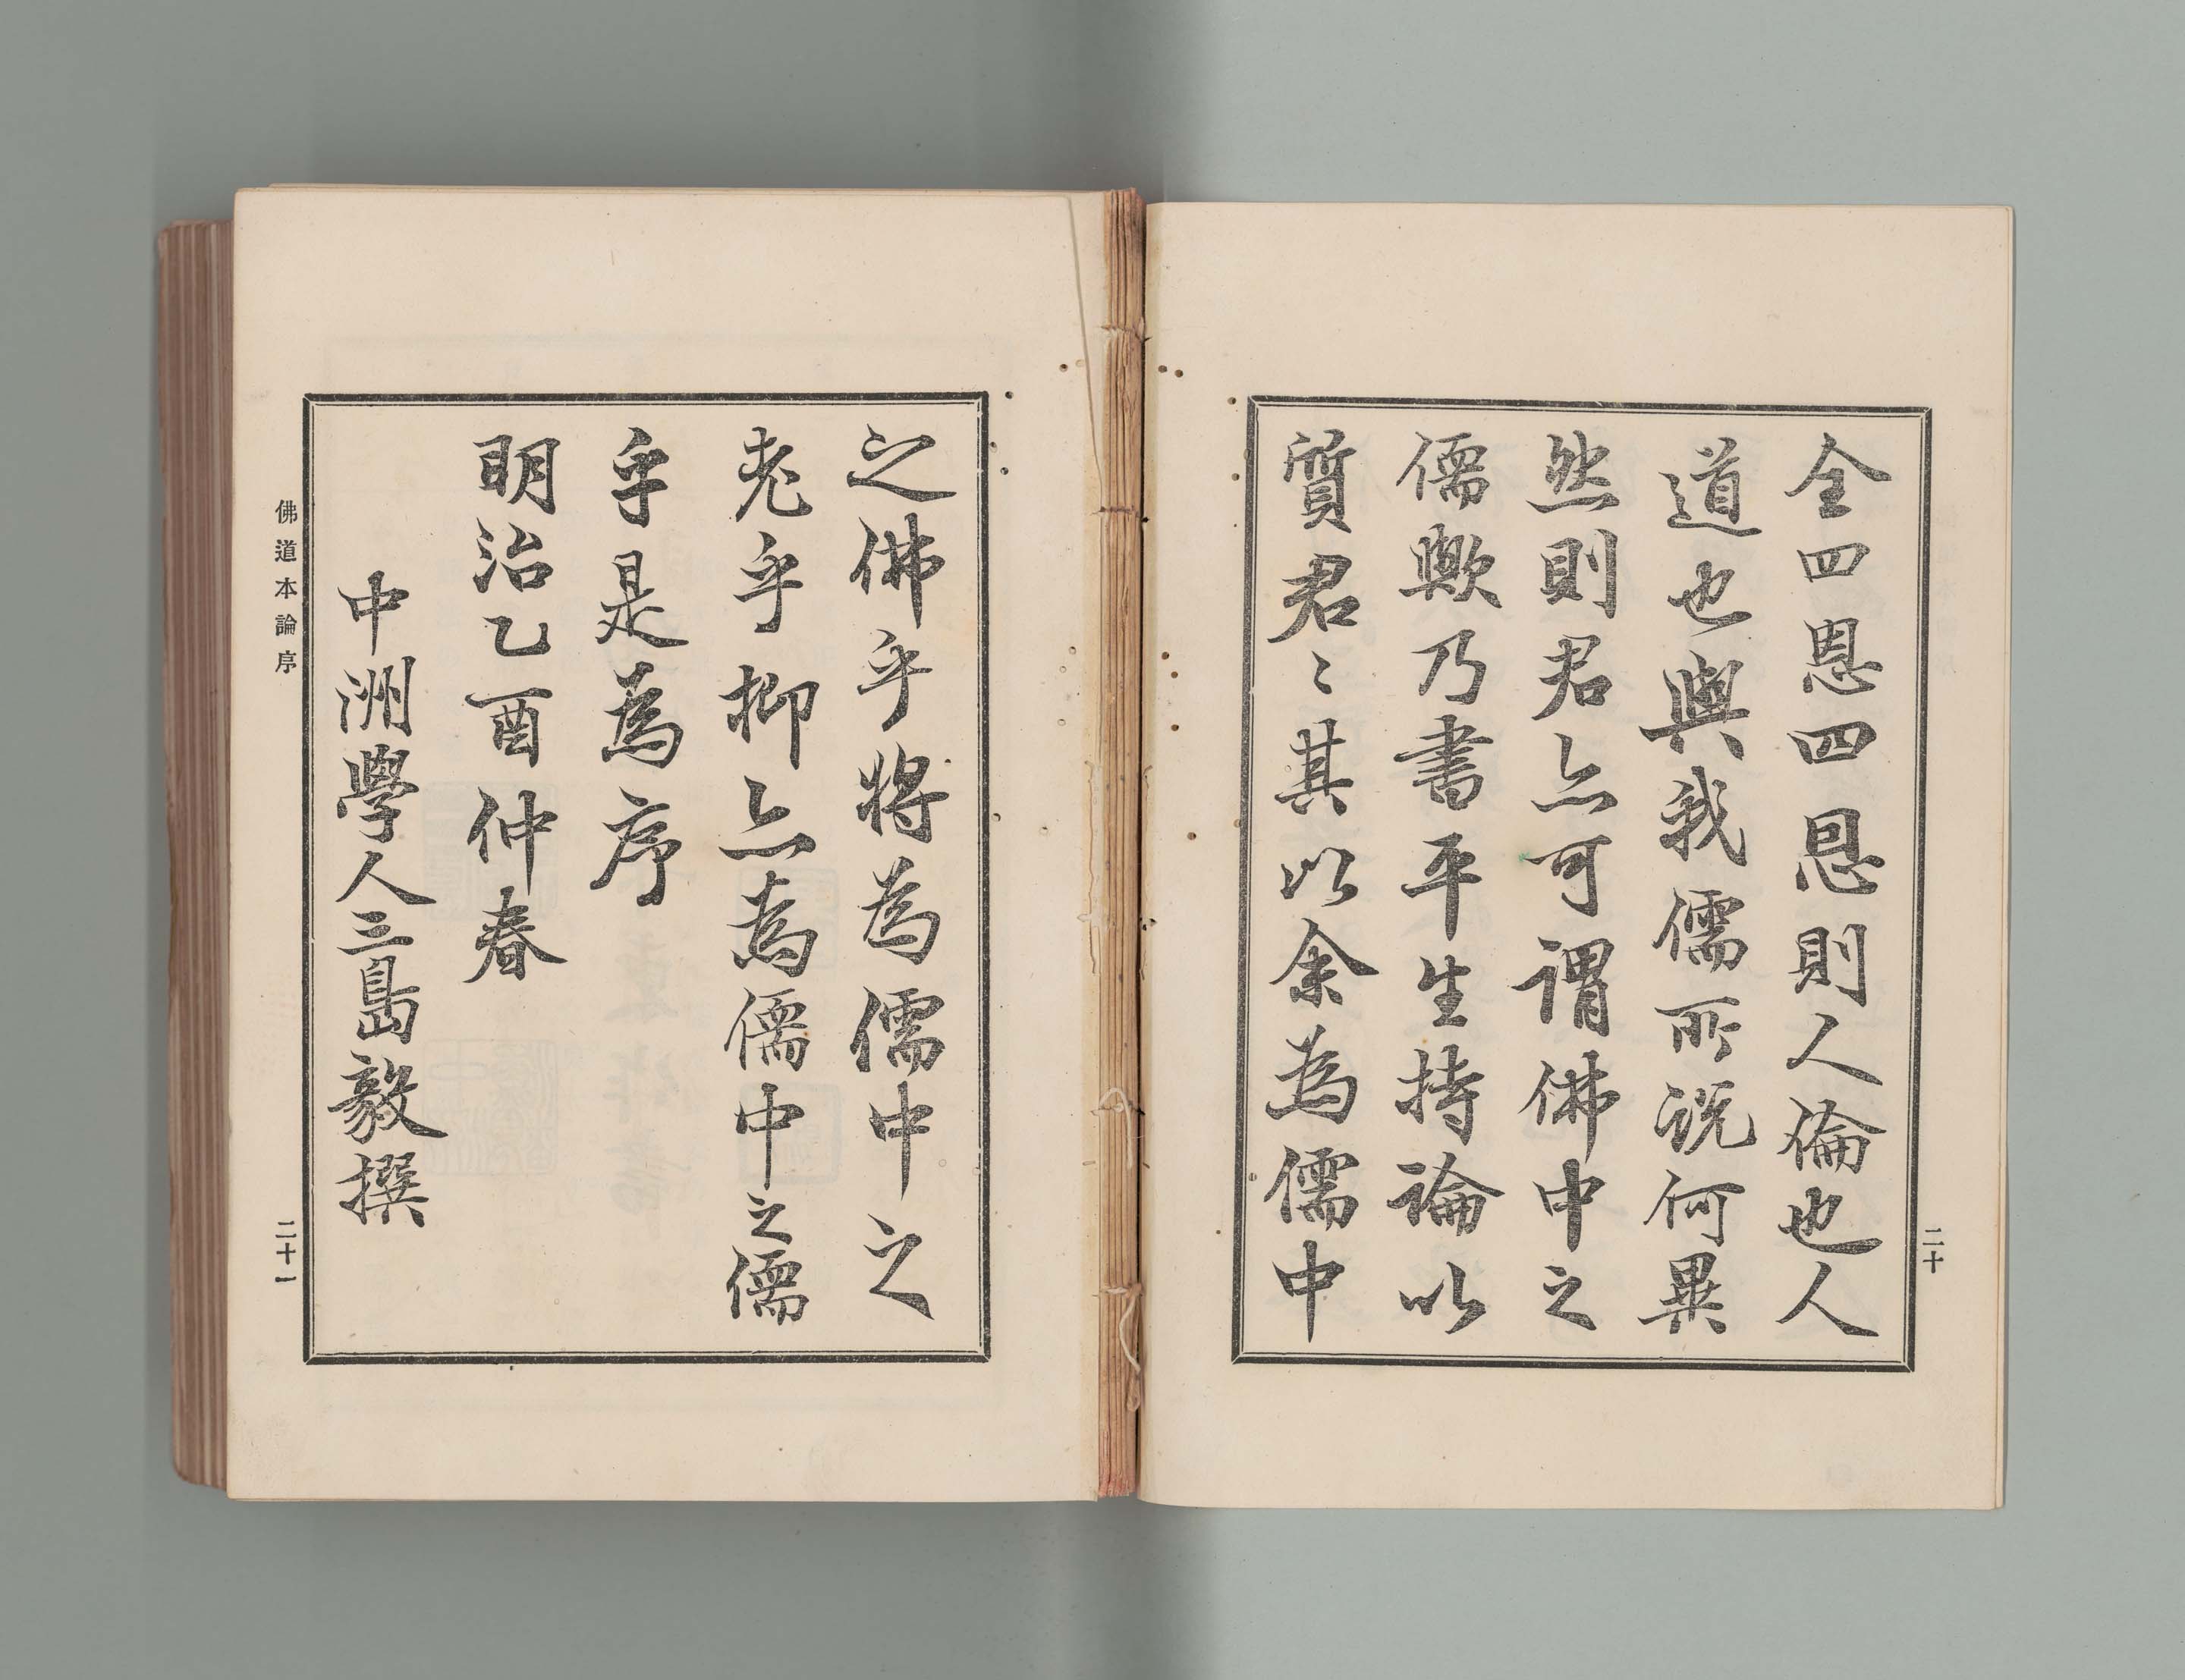 全四恩四恩則人倫也人
道也與我儒所説何異
然則君亦可謂佛中之
儒歟乃書平生持論以
質君〻其以余為儒中
二十
之佛乎將為儒中之
老乎抑亦為儒中之儒
乎是為序
明治乙酉仲春
中洲學人三島毅撰
佛道本論序
二十一